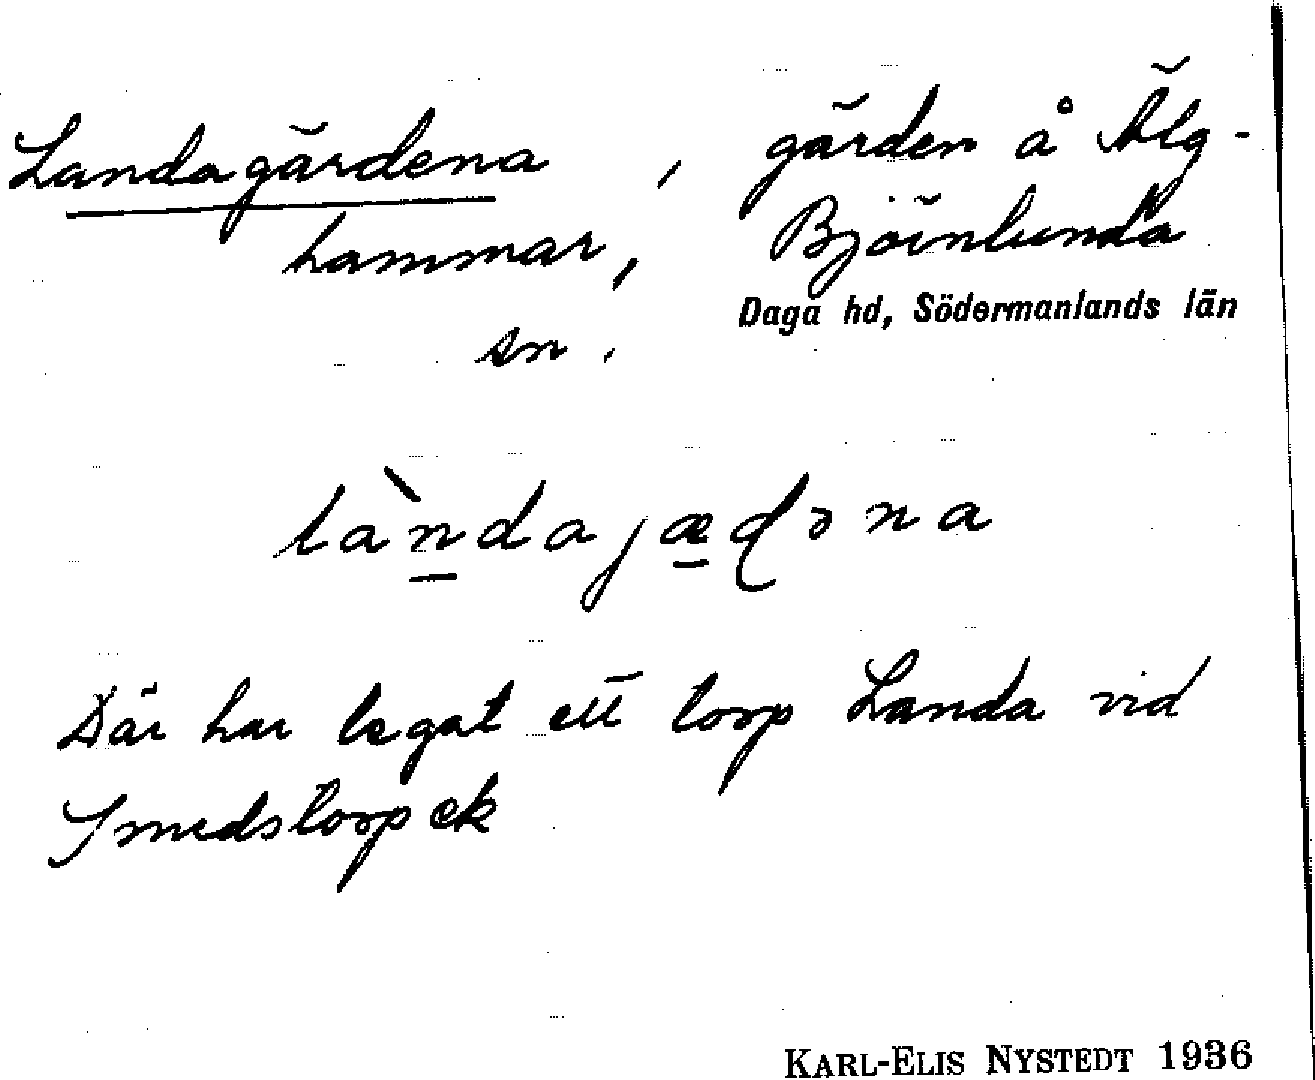 Landagärdena , gärden å Älg-
hammar, Björnlunda
Daga hd, Södermanlands län
sn.
làndajædəna
Där har legat ett torp Landa vid
Smedstorp ek
KARL-ELIS NYSTEDT 1936